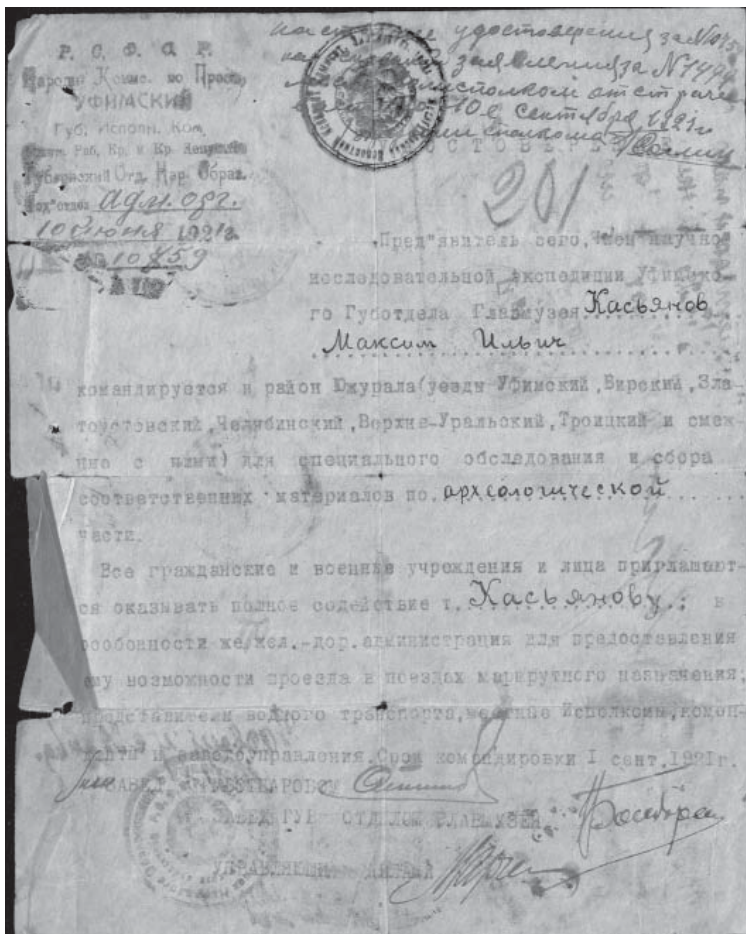 Р. С. Ф. С. Р.
Народн. Комис. по Просв.
УФИМСКИЙ
Губ. Исполн. Ком.
Раб. Кр. и Кр.
Губернский Отд. Нар. Образ.
Под"отдел Адм. Орг.
10 июня 1921 г.
№ 10859
удостоверения за №
заявления за №
10го сентября 1921 г.
201
Пред"явитель сего, Член научно
исследовательной экспедиции Уфимско-
го Губотдела Главмузея Касьянов
Максим Ильич
командируется в район Южурала (уезды Уфимский, Бирский, Зла-
тоустовский, Челябинский, Верхне-Уральский, Троицкий и смеж-
ные с ними) для специального обследования и сбора
соответственных материалов по археологической
части.
Все гражданские и военные учреждения и лица приглашают-
ся оказывать полное содействие т. Касьянову; в
особенности же жел.-дор. администрация для предоставления
ему возможности проезда в поездах маршрутного назначения;
представители водного транспорта, местные Исполкомы,
Срок командировки 1 сент. 1921 г.
ЗАВЕД.
ЗАВЕД. ГУБ. ОТДЕЛОМ ГЛАВМУЗЕЯ
УПРАВЛЯЮЩИЙ ДЕЛАМИ